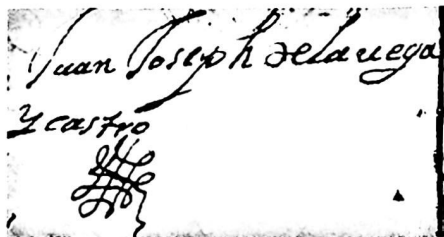 Juan Joseph de la uega
y castro